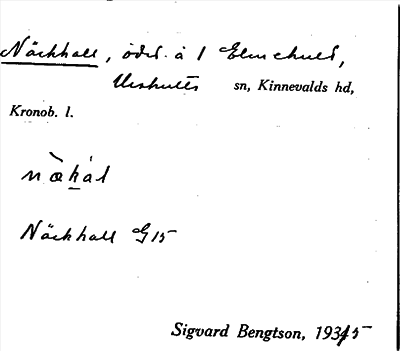 Näckhall, öde. å 1 Elmehult,
Urshults sn, Kinnevalds hd,
Kronob. l.
nækal
Näckhall G15
Sigvard Bengtson, 1934/5